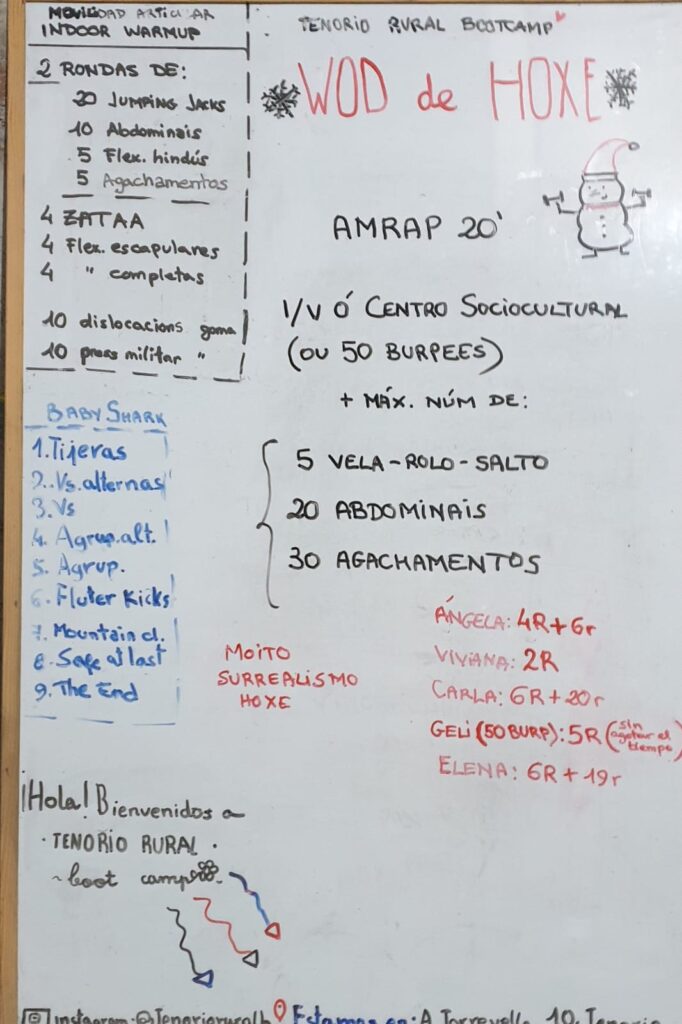 MOVILIDAD ARTICULAR
INDOOR WARMUP
2 RONDAS DE:
20 JUMPING JACKS
10 Abdominais
5 Flex. hindús
5 Agachamentos
4 ZATAA
4 Flex. escapulares
4 " completas
10 dislocacions goma
10 press militar "
BABY SHARK
1. Tijeras
2. Vs. alternas
3. Vs
4. Agrup. alt.
5. Agrup.
6. Fluter Kicks
7. Mountain cl.
8. Safe at last
9. The End
TENORIO RURAL BOOTCAMP
WOD de HOXE
AMRAP 20'
I/V Ó CENTRO SOCIOCULTURAL
(OU 50 BURPEES)
+ MÁX. NÚM DE:
5 VELA-ROLO-SALTO
20 ABDOMINAIS
30 AGACHAMENTOS
MOITO
SURREALISMO
HOXE
ÁNGELA: 4R + 6r
VIVIANA: 2R
CARLA: 6R + 20r
GELI (50 BURP): 5R (sin agotar el tiempo)
ELENA: 6R + 19r
¡Hola! Bienvenidos a
· TENORIO RURAL ·
~ boot camp
Instagram: @Tenorioruralb
Estamos en: A Torrevella, 10. Tenorio